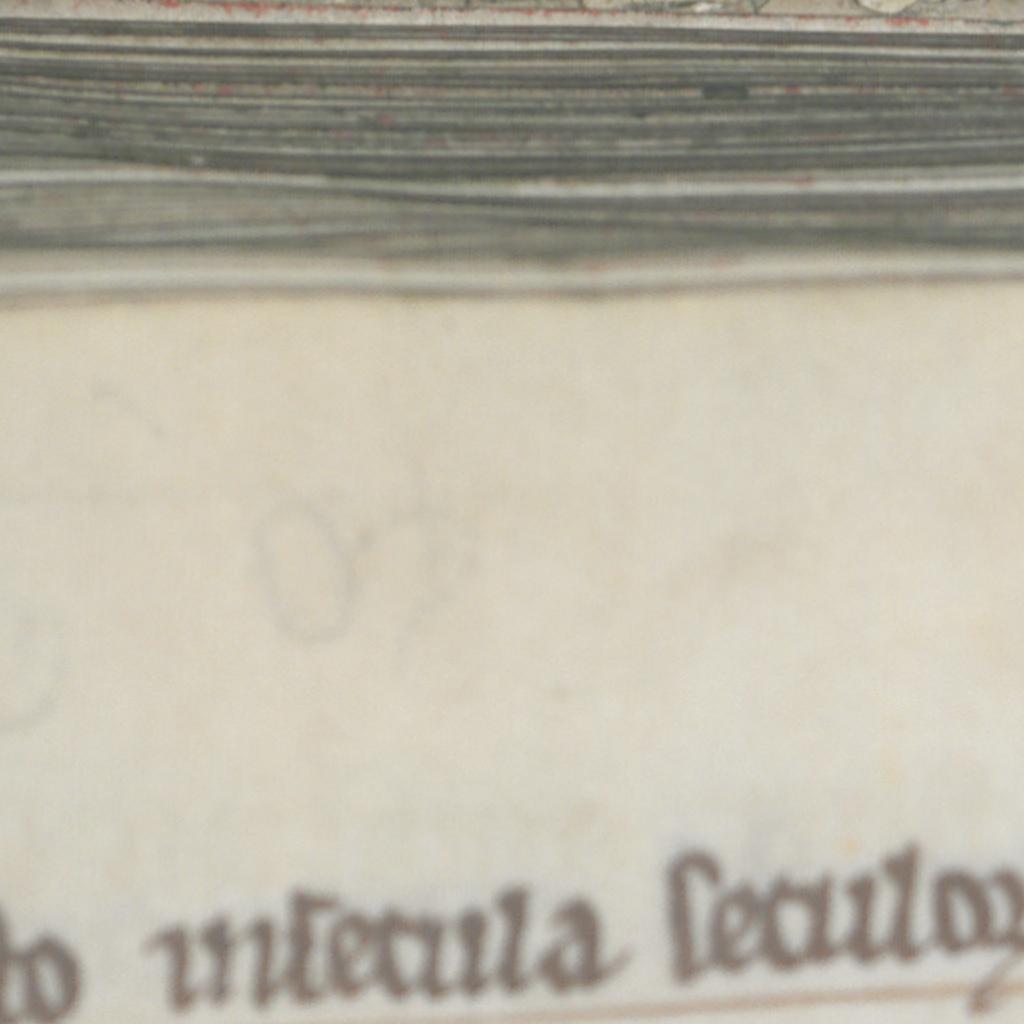 to inſecula ſeculoꝝ